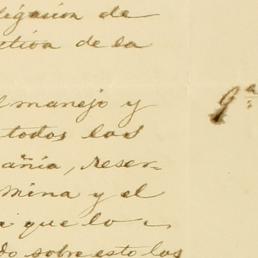 ligasión de
ctiva de la
l manejo y
todos las
añia, reser-
mina y el
que lo
do sobre esto las
9a